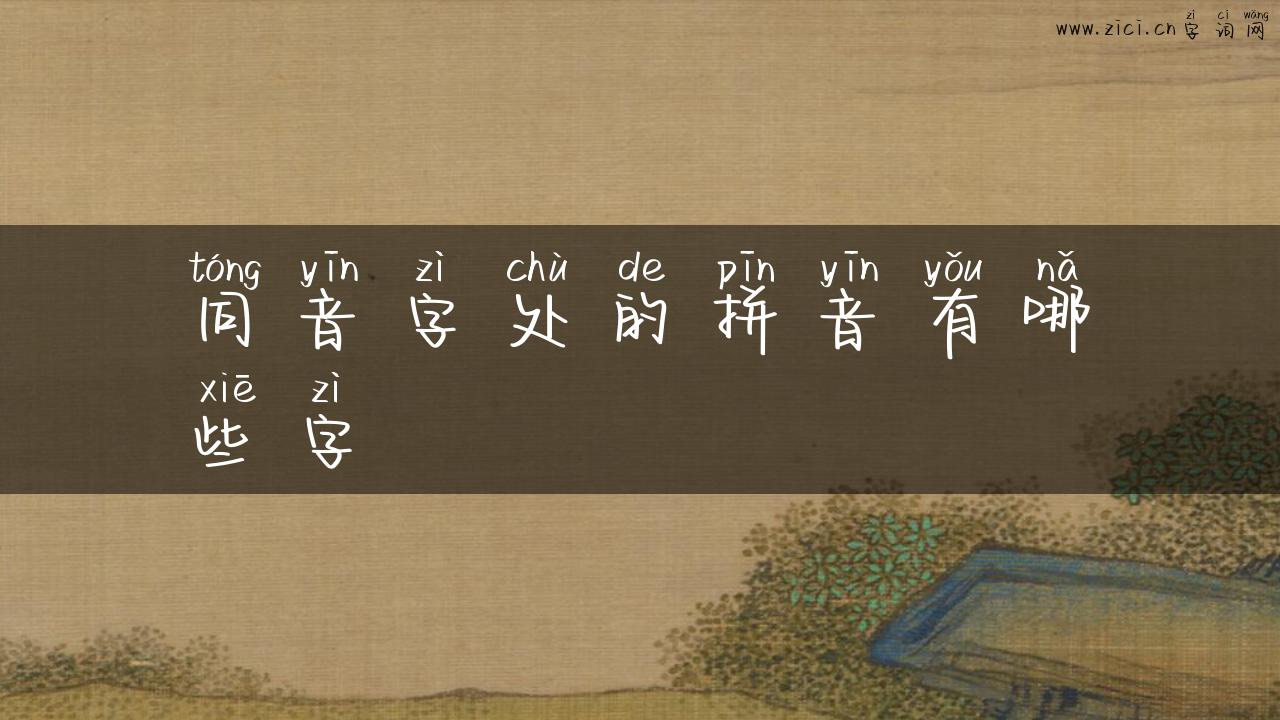 zì cí wǎng
www.zici.cn 字词网
tóng yīn zì chù de pīn yīn yǒu nǎ
同音字处的拼音有哪
xiē zì
些字